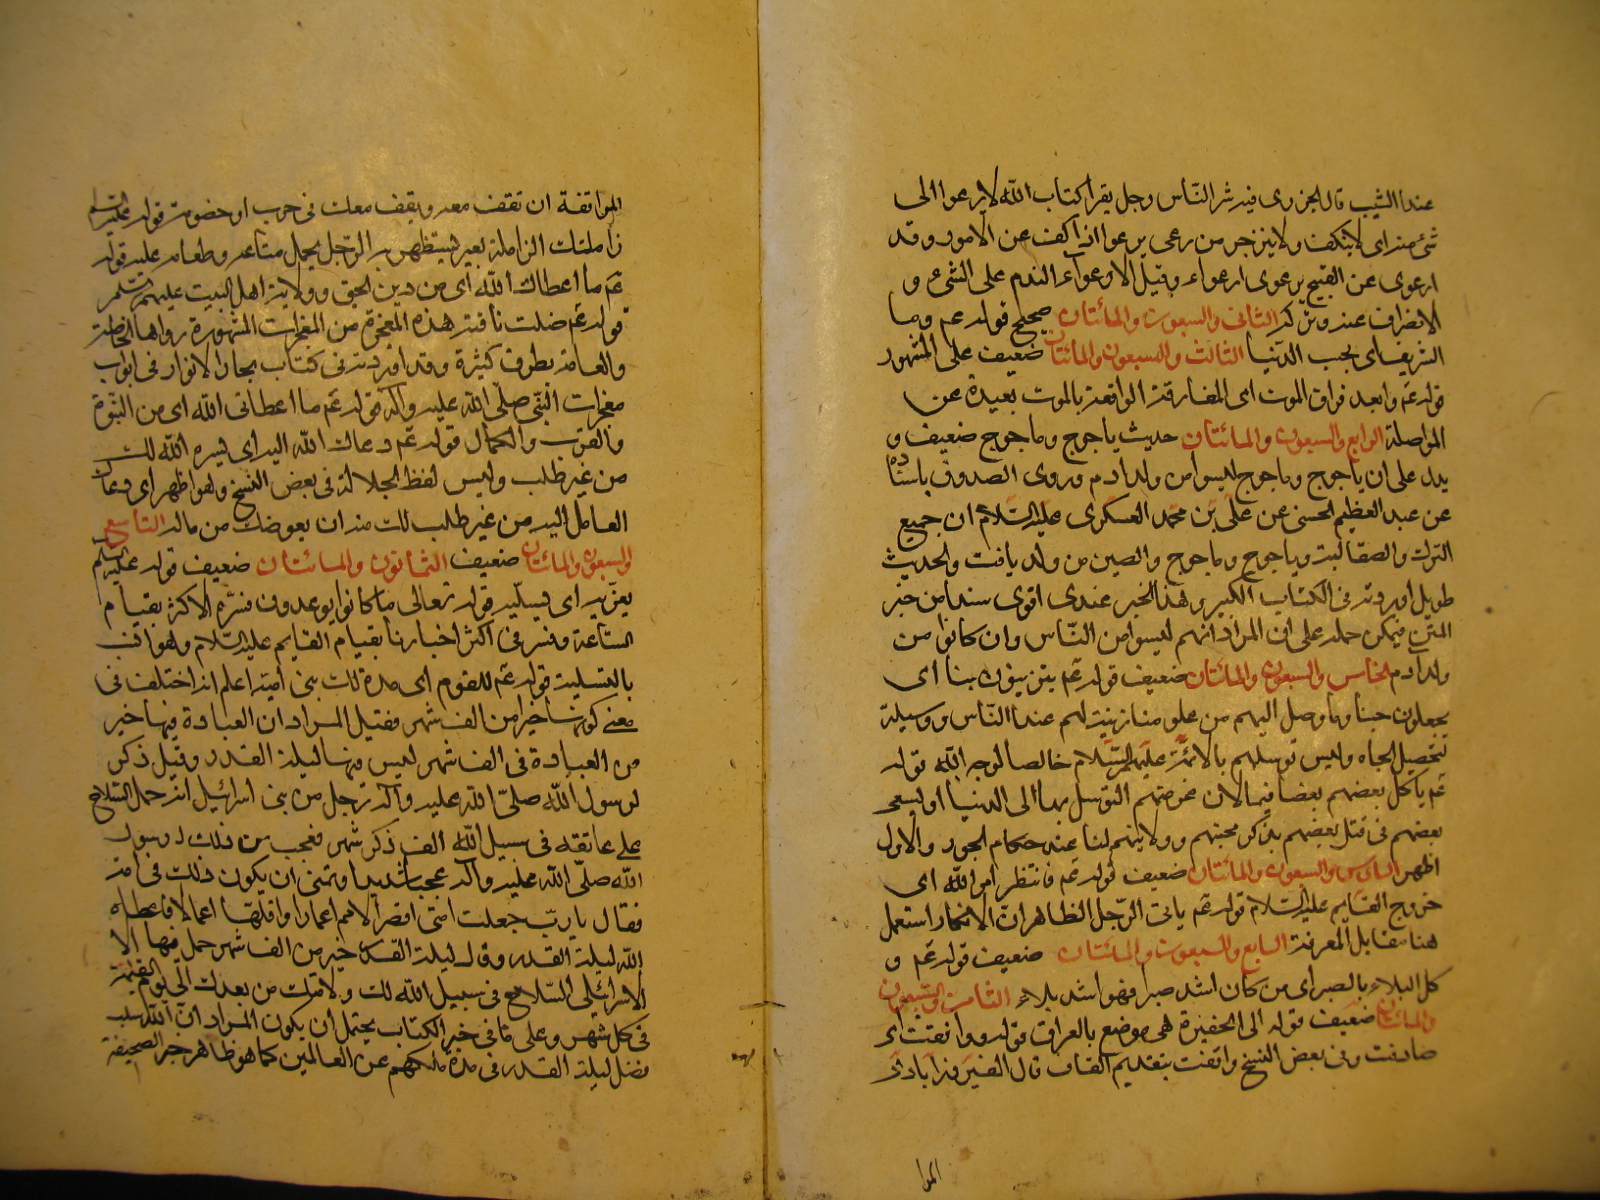 عند الشيب قال الجزرى فيه شر النّاس رجل يقرا كتاب اللّه لا يرعوا الى
شئ منه اى لا ينكف ولا ينزجر من رعى يرعوا اذا كف عن الامور وقد
ارعوى عن القبيح يرعوى ارعواء وقيل الارعوآء الندم على الشئ و
الانصراف عنه وتركه الثانى والسبعون والمائتان صحيح قوله عم وما
الشريف اى يحب الدّنيا الثالث والسبعون والمائتان ضعيف على المشهور
قوله عم وابعد فراق الموت اى المفارقة الواقعة بالموت بعيدة عن
المواصلة الرابع والسبعون والمائتان حديث ياجوج وماجوج ضعيف و
يدل على ان ياجوج وماجوج ليسوا من ولد ادم وروى الصدوق باسناده
عن عبد العظيم الحسنى عن على بن محمّد العسكرى عليه السّلام ان جميع
الترك والصقالبة وياجوج وماجوج والصين من ولد يافت والحديث
طويل اوردته فى الكتاب الكبير وهذا الخبر عندى اقوى سندا من خبر
المتن فيمكن حمله على ان المراد انهم ليسوا من النّاس وان كانوا من
ولد آدم الخامس والسبعون والمائتان ضعيف قوله عم يتزينون بنا اى
يجعلون حبنا وما وصل اليهم من علومنا زينة لهم عند النّاس ووسيلة
لتحصيل الجاه وليس توسلهم بالائمّة عليهم السّلام خالصا لوجه اللّه قوله
عم ياكل بعضهم بعضا فيما لان غرضهم التوسل بها الى الدنيا او ليسعى
بعضهم فى قتل بعضهم بذكر محبتهم وولايتهم لنا عند حكام الجور والاول
اظهر السادس والسبعون والمائتان ضعيف قوله عم فانتظر امر اللّه اى
خروج القايم عليه السّلام قوله عم ياتى الرّجل الظاهر انّ الانكار استعمل
هنا مقابل المعرفة السابع والسبعون والمائتان ضعيف قوله عم و
كل البلاء بالصبر اى من كان اشد صبرا فهو اشد بلاء الثامن والسّبعون
والمائتان ضعيف قوله الى الحفيرة هى موضع بالعراق قوله ووافقت اى
صادفت وفى بعض النسخ واتفت بتقديم القاف قال الفيروزابادى
الموا
المواقفة ان تقف معه ويقف معك فى حرب او خصومة قوله عليه السلم
زاملتك الزاملة بعير يستظهر به الرّجل يحمل متاعه وطعامه عليه قوله
عم ما اعطاك اللّه اى من دين الحق وولاية اهل البيت عليهم السلم
قوله عم ضلت ناقته هذه المعجزة من المعجزات المشهورة رواها الخاصة
والعامة بطرق كثيرة وقد اوردته فى كتاب بحار الانوار فى ابواب
معجزات النبّى صلّى اللّه عليه وآله قوله عم ما اعطانى اللّه اى من النبّوة
والقرب والكمال قوله عم دعاك اللّه اليه اى يسره اللّه لك
من غير طلب وليس لفظ الجلالة فى بعض النسخ وهو اظهر اى دعاك
العامل اليه من غير طلب لك منه ان يعوضك من ماله التاسع
والسبعون والمائتان ضعيف الثمانون والمائتان ضعيف قوله عليه السلم
يعزّيه اى يسلّيه قوله تعالى ما كانوا يوعدون فسّره الاكثر بقيام
السّاعة وفسر فى اكثر اخبارنا بقيام القايم عليه السّلام وهو انسب
بالتسلية قوله عم للقوم اى مدة ملك بنى اميّة اعلم انه اختلف فى
معنى كونها خيرا من الف شهر فقيل المراد ان العبادة فيها خير
من العبادة فى الف شهر ليس فيها ليلة القدر وقيل ذكر
لرسول اللّه صلىّ اللّه عليه وآله رجل من بنى اسرائيل انّه حمل السّلاح
على عاتقه فى سبيل اللّه الف شهر فعجب من ذلك رسول
اللّه صلّى اللّه عليه وآله عجبا شديدا وتمنى ان يكون ذلك فى امته
فقال يا ربّ جعلت امّتى اقصر الامم اعمارا واقلّها اعمالا فاعطاه
اللّه ليلة القدر وقال ليلة القدر خير من الف شهر حمل فيها الا
الاسرائيلى السّلاح فى سبيل اللّه لك ولامّتك من بعدك الى يوم القيمة
فى كل شهر وعلى ما فى خبر الكتاب يحتمل ان يكون المراد انّ اللّه سلب
فضل ليلة القدر فى مدة ملكهم عن العالمين كما هو ظاهر خبر الصحيفة